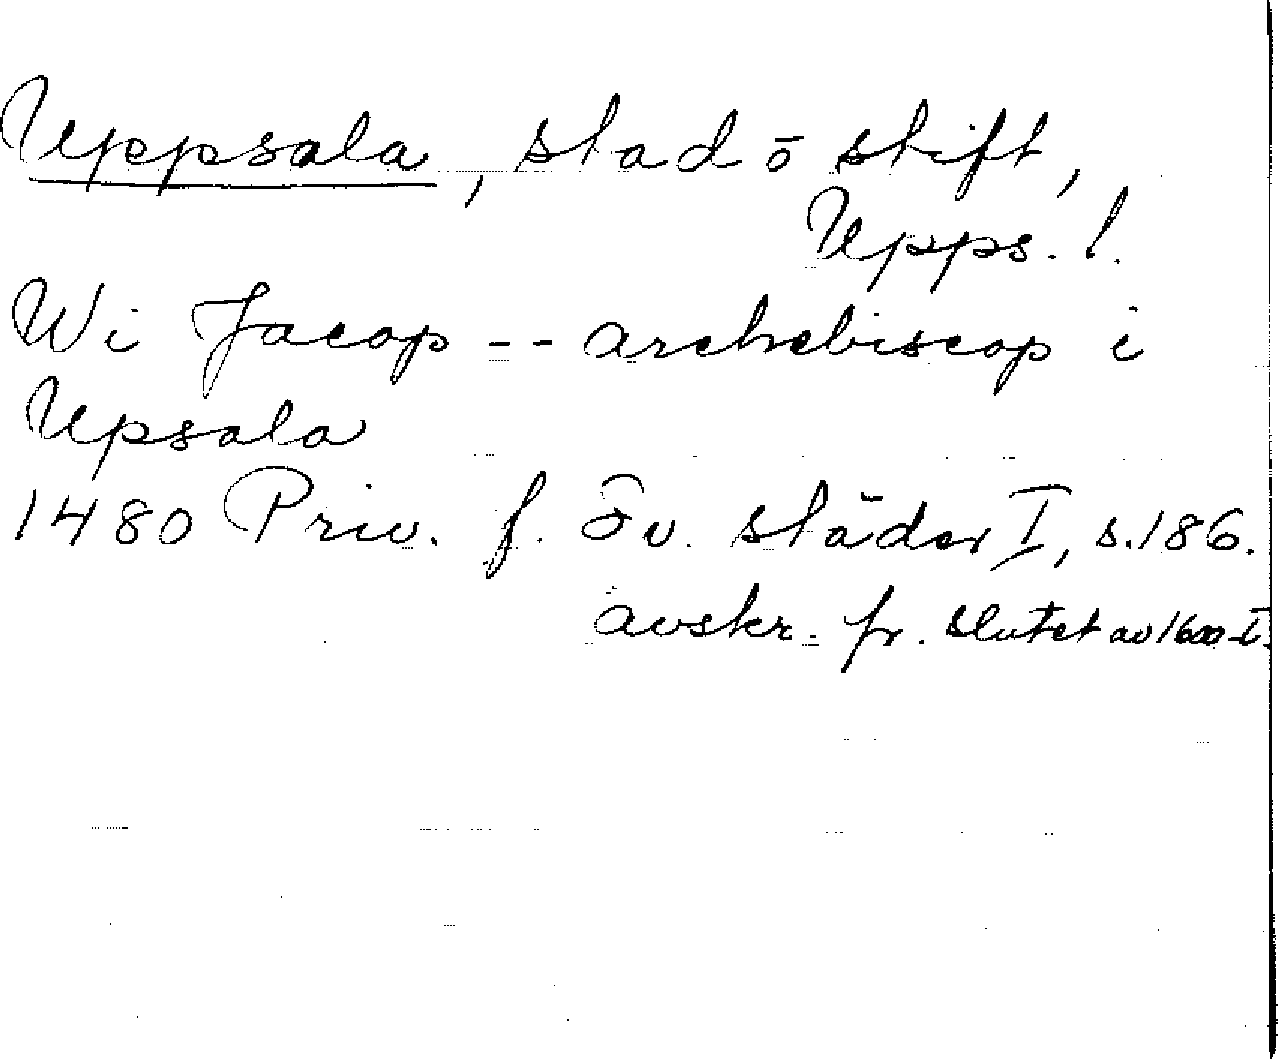 Uppsala, stad o stift,
Upps. l.
Wi Jacop -- archebiscop i
Upsala
1480 Priv. f. Sv. städer I, s. 186.
avskr. fr. slutet av 1600-t.